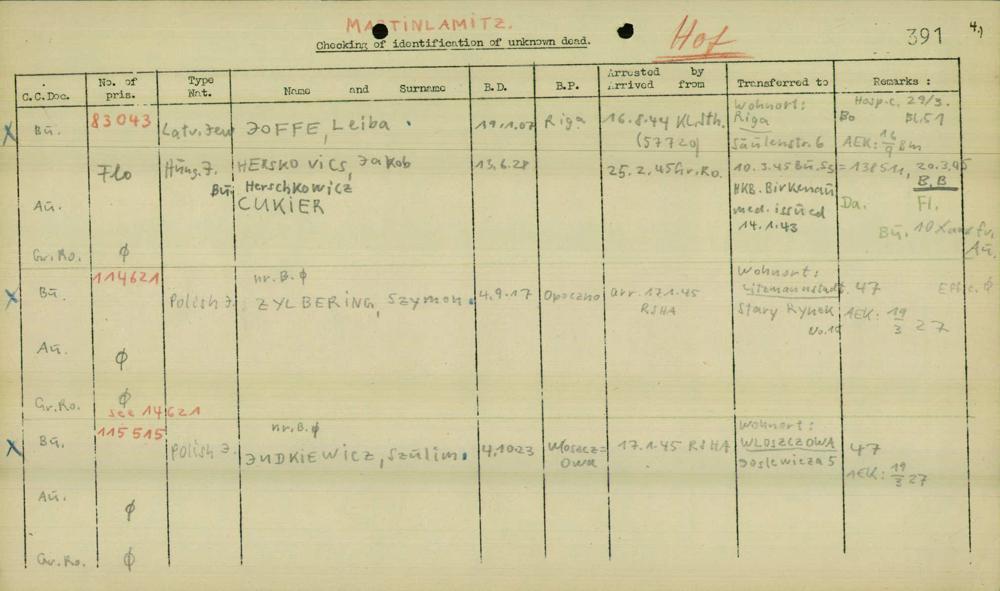 MARTINLAMITZ.
Checking of identification of unknown dead.
Hof
391
4.)
C.C.Doc.
No. of pris.
Type Nat.
Name and Surname
B.D.
B.P.
Arrested by
Arrived from
Transferred to
Remarks :
Bü.
83043
Latv. Jew
JOFFE, Leiba
19.1.07
Riga
16.8.44 KL.Sth.
(57720)
Wohnort:
Riga
Säulenstr. 6
Hosp.c. 29/3.
Bo Bl.51
AEK: 16/9 8m
Flo
Hung. J.
HERSKOVICS, Jakob
13.6.28
25.2.45 Gr.Ro.
10.3.45 Bü. = 138511, 20.3.45
B.B
Bü. Herschkowicz
CUKIER
HKB. Birkenau
med. issued
14.1.43
Da. Fl.
Bü. 10X
Au.
Au.
Gr.Ro.
ø
114621
Bü.
Polish J.
nr.B.ø
ZYLBERING, Szymon.
4.9.17
Opoczno
arr. 17.1.45
RSHA
Wohnort:
Litzmannstadt.
Stary Rynek
No.
47
Eff.c. ø
AEK: 19/3 27
Au.
ø
Gr.Ro.
ø
see 14621
115515
Bü.
Polish J.
nr.B.ø
JUDKIEWICZ, Szulim.
4.10.23
Wloszcz=
owa
17.1.45 RSHA
Wohnort:
WLOSZCZOWA
Joslewicza 5
47
AEK: 19/3 27
Au.
ø
Gr.Ro.
ø